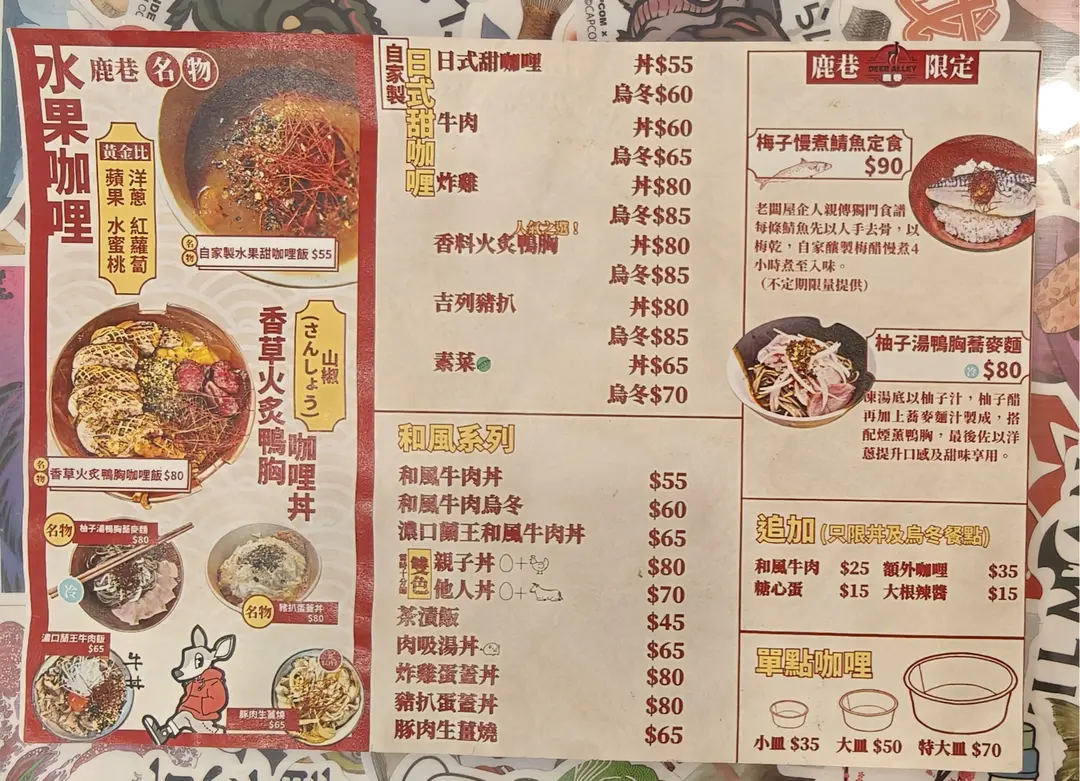 水果咖哩
鹿巷 名物
黃金比
洋蔥 紅蘿蔔
蘋果 水蜜桃
名物 自家製水果甜咖哩飯 $55
山椒
(さんしょう)
香草火炙鴨胸
咖哩丼
名物 香草火炙鴨胸咖哩飯 $80
名物 柚子湯鴨胸蕎麥麵
$80
冷
名物 豬扒蛋蓋丼
$80
濃口蘭王牛肉飯
$65
牛丼
豚肉生薑燒
$65
自家製
日式甜咖喱
日式甜咖喱 丼$55
烏冬$60
牛肉 丼$60
烏冬$65
炸雞 丼$80
烏冬$85
人氣之選!
香料火炙鴨胸 丼$80
烏冬$85
吉列豬扒 丼$80
烏冬$85
素菜 丼$65
烏冬$70
和風系列
和風牛肉丼 $55
和風牛肉烏冬 $60
濃口蘭王和風牛肉丼 $65
雙色
親子丼 $80
他人丼 $70
茶漬飯 $45
肉吸湯丼 $65
炸雞蛋蓋丼 $80
豬扒蛋蓋丼 $80
豚肉生薑燒 $65
鹿巷 DEER ALLEY 限定
梅子慢煮鯖魚定食
$90
老闆屋企人親傳獨門食譜
每條鯖魚先以人手去骨，以
梅乾，自家釀製梅醋慢煮4
小時煮至入味。
（不定期限量提供）
柚子湯鴨胸蕎麥麵
冷 $80
凍湯底以柚子汁，柚子醋
再加上蕎麥麵汁製成，搭
配煙薰鴨胸，最後佐以洋
蔥提升口感及甜味享用。
追加 (只限丼及烏冬餐點)
和風牛肉 $25 額外咖哩 $35
糖心蛋 $15 大根辣醬 $15
單點咖哩
小皿 $35 大皿 $50 特大皿 $70